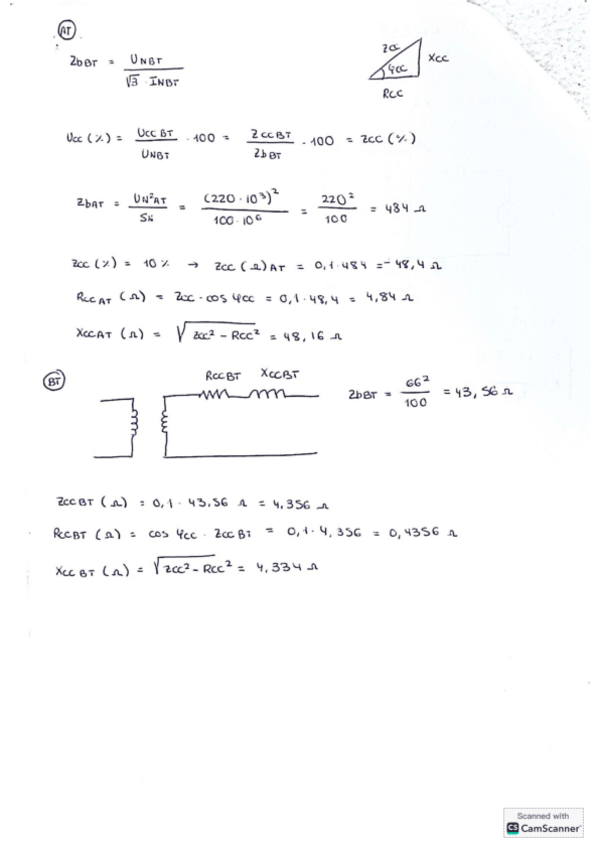 AT
ZbBT = UNBT / √3 · INBT
Zcc Xcc
φcc
Rcc
Ucc (%) = UccBT / UNBT · 100 = ZccBT / ZbBT · 100 = Zcc (%)
ZbAT = UN²AT / SN = (220 · 10³)² / 100 · 10⁶ = 220² / 100 = 484 Ω
Zcc (%) = 10 % → Zcc (Ω)AT = 0,1 · 484 = 48,4 Ω
RccAT (Ω) = Zcc · cos φcc = 0,1 · 48,4 = 4,84 Ω
XccAT (Ω) = √Zcc² - Rcc² = 48,16 Ω
BT
RccBT XccBT
ZbBT = 66² / 100 = 43,56 Ω
ZccBT (Ω) = 0,1 · 43,56 Ω = 4,356 Ω
RccBT (Ω) = cos φcc · ZccBT = 0,1 · 4,356 = 0,4356 Ω
XccBT (Ω) = √Zcc² - Rcc² = 4,334 Ω
Scanned with
CS CamScanner